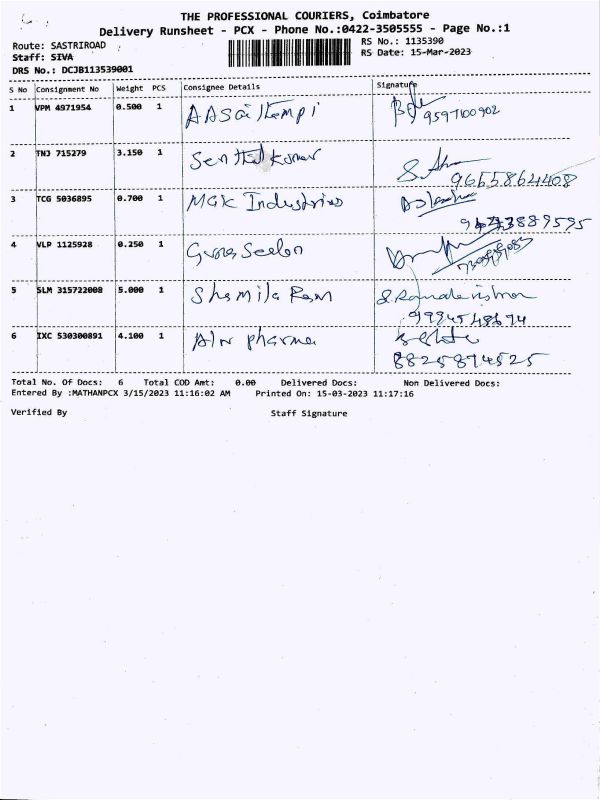 THE PROFESSIONAL COURIERS, Coimbatore
Delivery Runsheet - PCX - Phone No.:0422-3505555 - Page No.:1
Route: SASTRIROAD
RS No.: 1135390
Staff: SIVA
RS Date: 15-Mar-2023
DRS No.: DCJB113539001
S No Consignment No Weight PCS Consignee Details Signature
1 VPM 4971954 0.500 1
2 TNJ 715279 3.150 1 Senthil Kumar
9665864408
3 TCG 5036895 0.700 1 MGK Industries
4 VLP 1125928 0.250 1 Guna Seelan
5 SLM 315722008 5.000 1 Shamila Ram
6 IXC 530300891 4.100 1 pharma
8825874525
Total No. Of Docs: 6 Total COD Amt: 0.00 Delivered Docs: Non Delivered Docs:
Entered By :MATHANPCX 3/15/2023 11:16:02 AM Printed On: 15-03-2023 11:17:16
Verified By Staff Signature